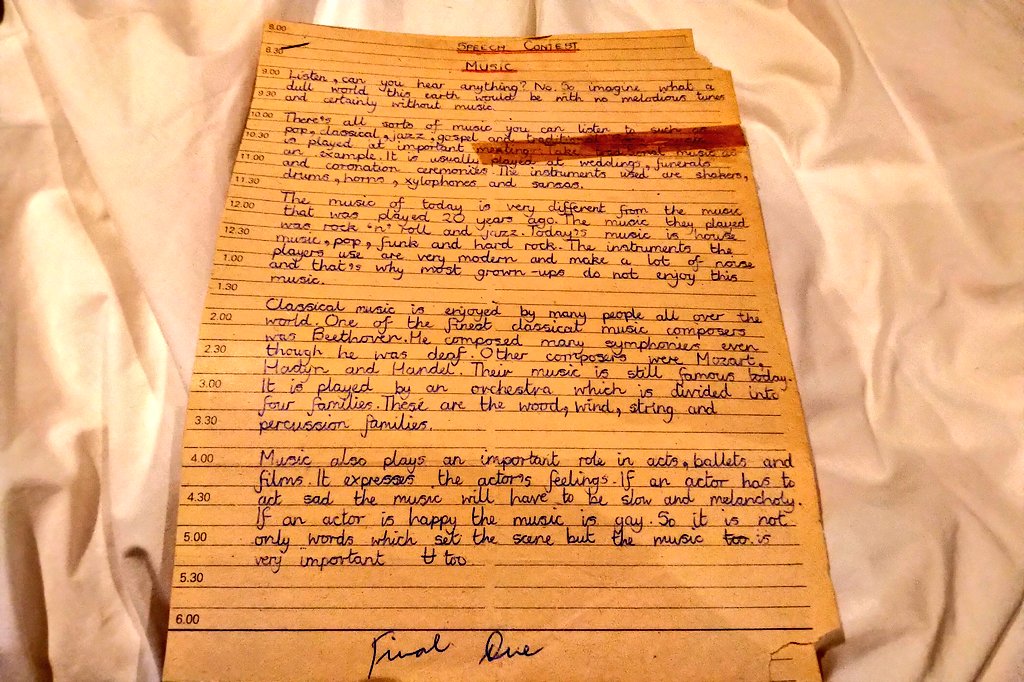 8.00
SPEECH CONTEST
8.30
MUSIC
9.00 Listen, can you hear anything? No. So imagine what a
dull world this earth would be with no melodious tunes
9.30 and certainly without music.
10.00 There's all sorts of music you can listen to such as
pop, classical, jazz, gospel and traditional
10.30 is played at important meeting. Take traditional music as
an example. It is usually played at weddings, funerals
11.00 and coronation ceremonies. The instruments used are shakers,
drums, horns, xylophones and sansas.
11.30
The music of today is very different from the music
12.00 that was played 20 years ago. The music they played
was rock 'n' roll and jazz. Today's music is house
12.30 music, pop, funk and hard rock. The instruments the
players use are very modern and make a lot of noise
1.00 and that's why most grown-ups do not enjoy this
music.
1.30
Classical music is enjoyed by many people all over the
2.00 world. One of the finest classical music composers
was Beethoven. He composed many symphonies even
2.30 though he was deaf. Other composers were Mozart,
Hadyn and Handel. Their music is still famous today.
3.00 It is played by an orchestra which is divided into
four families. These are the wood, wind, string and
3.30 percussion families.
4.00 Music also plays an important role in acts, ballets and
films. It expresses the actor's feelings. If an actor has to
4.30 act sad the music will have to be slow and melancholy.
If an actor is happy the music is gay. So it is not
5.00 only words which set the scene but the music too is
very important too
5.30
6.00
Final One